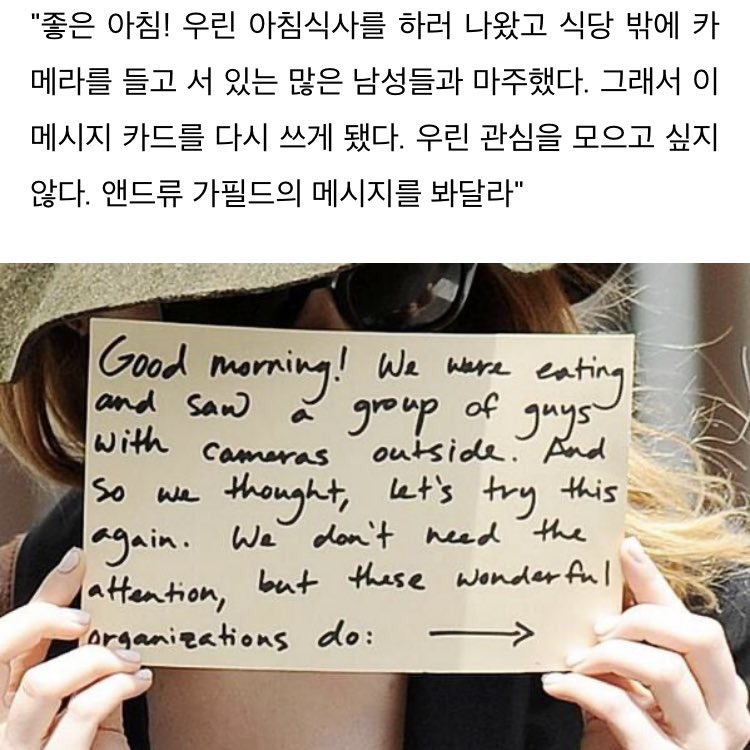 "좋은 아침! 우린 아침식사를 하러 나왔고 식당 밖에 카
메라를 들고 서 있는 많은 남성들과 마주했다. 그래서 이
메시지 카드를 다시 쓰게 됐다. 우린 관심을 모으고 싶지
않다. 앤드류 가필드의 메시지를 봐달라"
Good morning! We were eating
and saw a group of guys
with cameras outside. And
so we thought, let's try this
again. We don't need the
attention, but these wonderful
organizations do: →